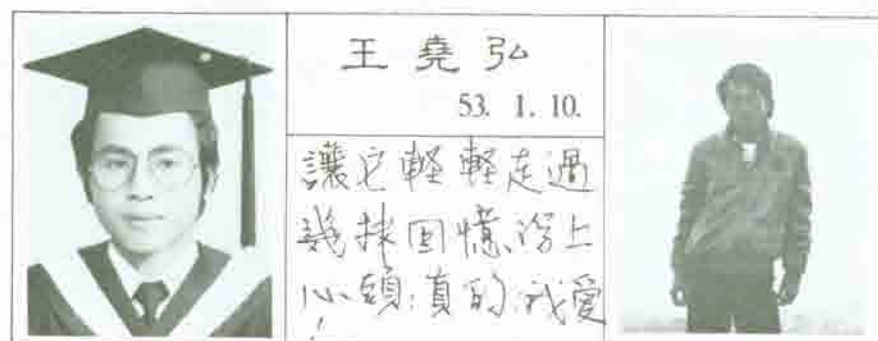 王堯弘
53. 1. 10.
讓它輕輕走過
幾抹回憶湧上
心頭:真的,我愛